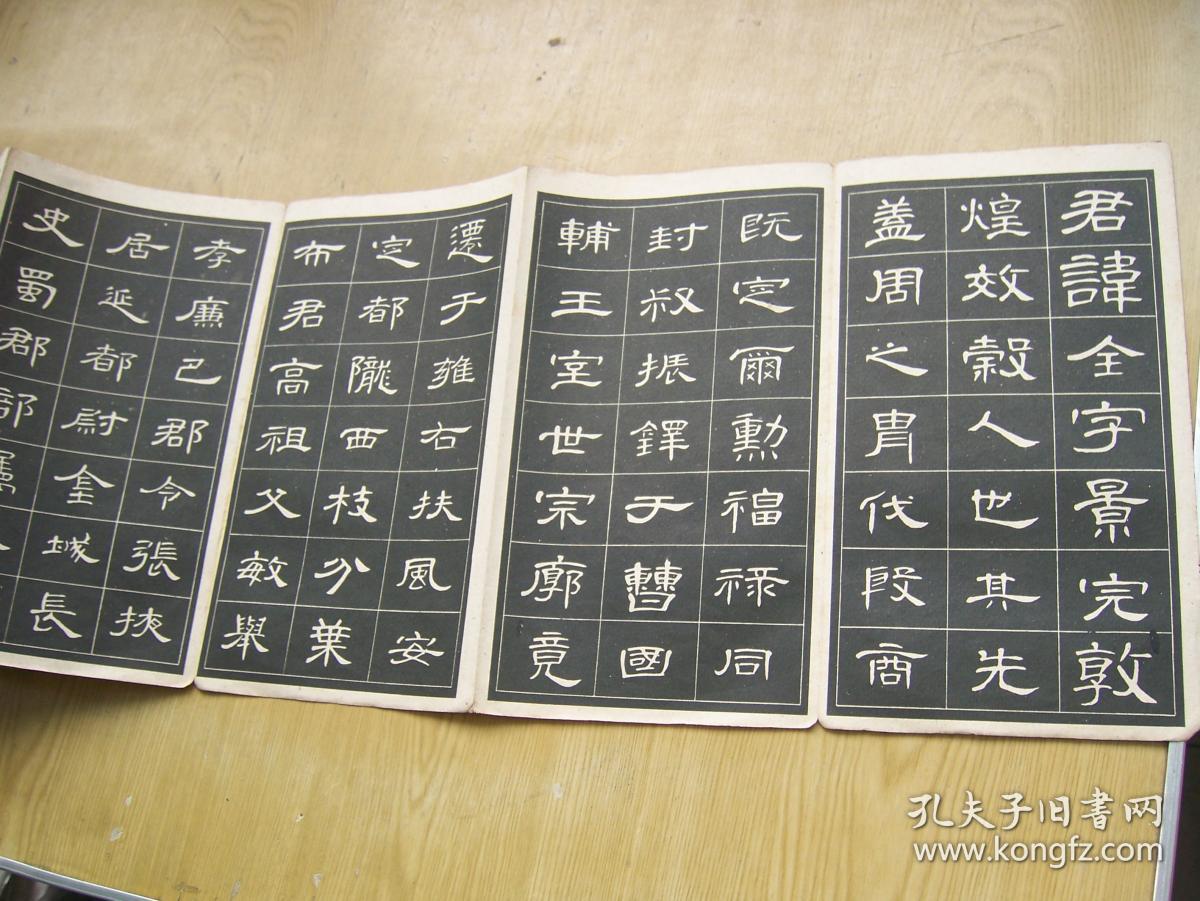 君諱全字景完敦
煌效穀人也其先
蓋周之胄伐殷商
既定爾勳福祿同
封叔振鐸于曹國
輔王室世宗廓竟
遷于雍右扶風安
定都隴西枝分葉
布君高祖父敏舉
孝廉巴郡令張掖
居延都尉金城長
史蜀郡部
孔夫子旧书网
www.kongfz.com